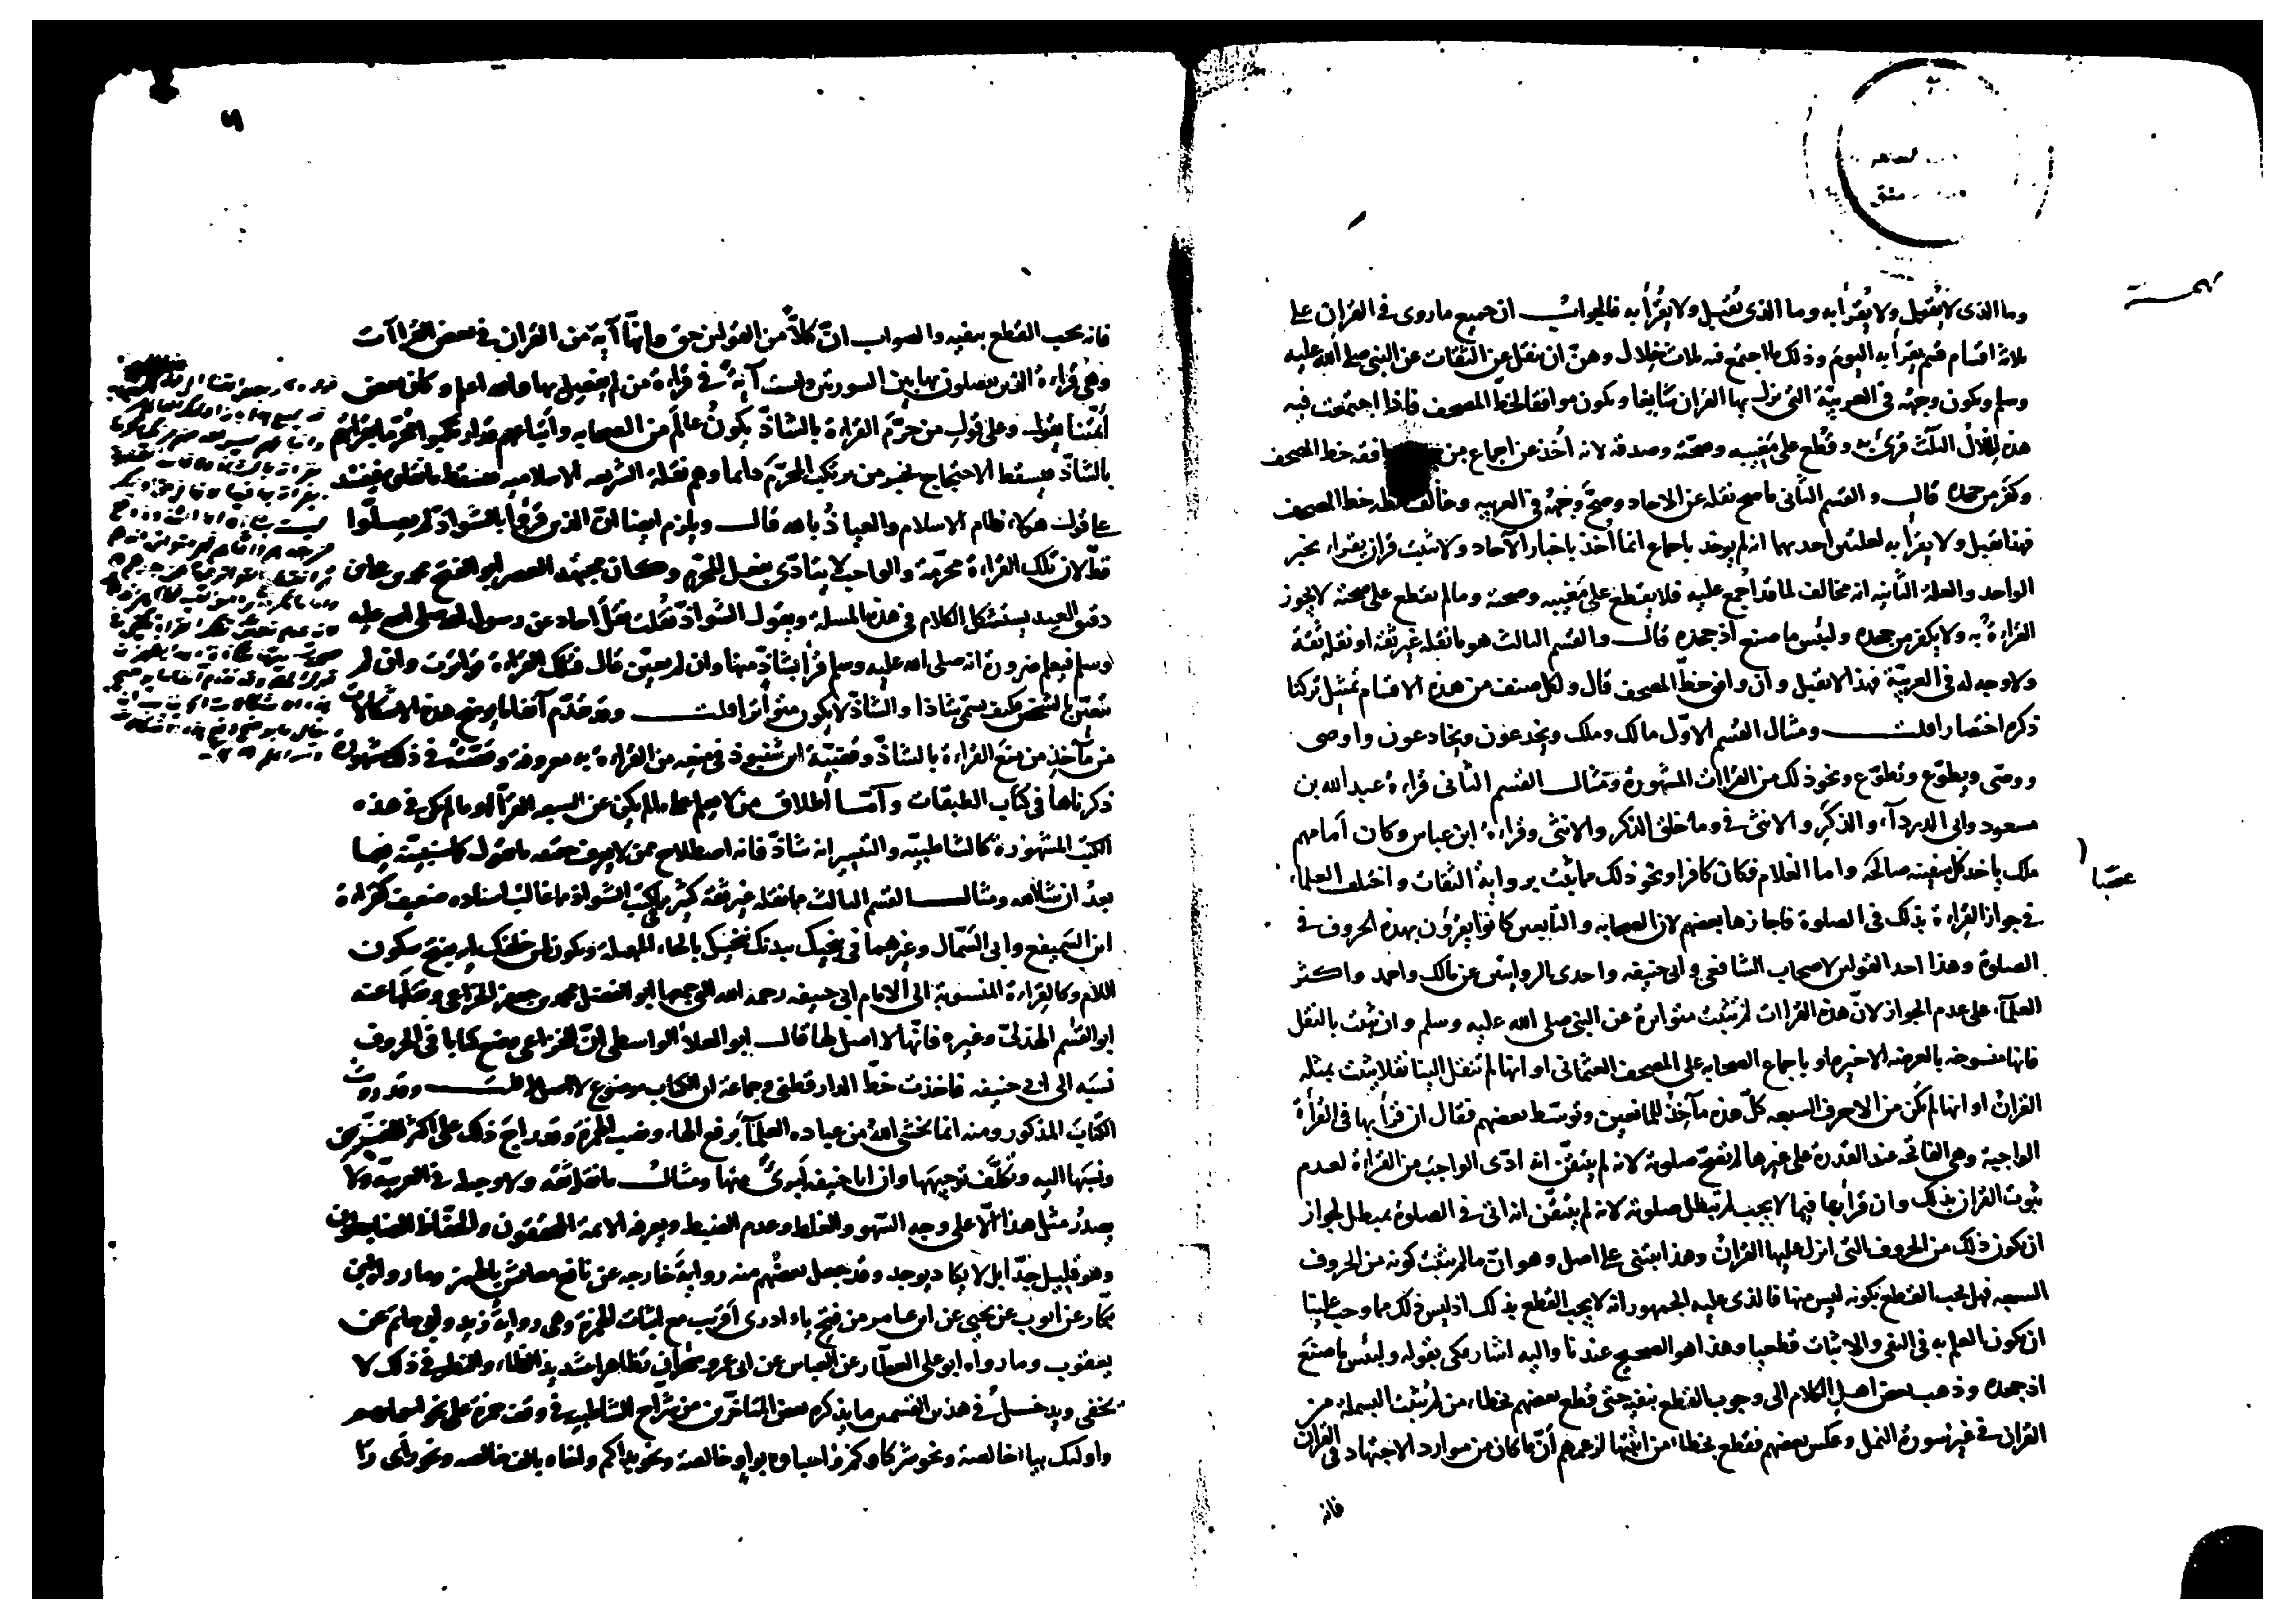 وما الذى لا يُقبل ولا يُقرأ به وما الذى يُقبل ولا يُقرأ به فالجواب ان جميع ما روى فى القران على
ثلاثة اقسام قسم يقرأ به اليوم وذلك ما اجتمع فيه ثلاث خلال وهنّ ان ينقل عن الثقات عن النبى صلى الله عليه
وسلم ويكون وجهه فى العربيّة التى نزل بها القران شايعا ويكون موافقا لخطّ المصحف فاذا اجتمعت فيه
هذه الخلال الثلث قرئ به وقُطع على مُغيبه وصحّته وصدقه لانه اُخذ عن اجماع من موافقه خط المصحف
وكفر من جحده قال والقسم الثانى ما صح نقله عن الاحاد وصحّ وجهُه فى العربيه وخالف لفظه خط المصحف
فهذا يقبل ولا يقرأ به لعلتين احديهما انه لم يوخذ باجماع انما اُخذ باخبار الآحاد ولا يثبت قران يقراء بخبر
الواحد والعلة الثانيه انه مخالف لما قد اُجمع عليه فلا يقطع على مُغيبه وصحته وما لم يقطع على صحته لا يجوز
القراءة به ولا يكفر من جحده ولبئس ما صنع اذ جحده قال والقسم الثالث هو ما نقله غير ثقة او نقله ثقة
ولا وجه له فى العربيّة فهذا لا يقبل وان وافق خطّ المصحف قال ولكل صنف من هذه الاقسام تمثيل تركنا
ذكره اختصارا قلت ومثال القسم الاوّل مالك وملك ويخدعون ويخادعون واوصى
ووصّى ويطوّع وتطوّع ونحو ذلك من القراات المشهورة ومثال القسم الثانى قراءة عبد الله بن
مسعود وابى الدرداء والذكر والانثى فى وما خلق الذكر والانثى وقراءة ابن عباس وكان امامهم
ملك ياخذ كل سفينة صالحة واما الغلام فكان كافرا ونحو ذلك مما يثبت برواية الثقات واختلف العلماء
غصبا
فى جواز القراءة بذلك فى الصلوة فاجازها بعضهم لان الصحابه والتابعين كانوا يقرؤن بهذه الحروف فى
الصلوة وهذا احد القولين لاصحاب الشافعى وابى حنيفه واحدى الروايتين عن مالك واحمد واكثر
العلماء على عدم الجواز لانّ هذه القراات لم تثبت متواترة عن النبى صلى الله عليه وسلم وان ثبتت بالنقل
فانها منسوخه بالعرضه الاخيره او باجماع الصحابه على المصحف العثمانى او انها لم تنقل الينا نقلا يثبت بمثله
القران او انها لم تكن من الاحرف السبعه كلّ هذه مآخذ للمانعين وتوسّط بعضهم فقال ان قرأ بها فى القراءة
الواجبة وهى الفاتحه عند القدرة على غيرها لم تصحّ صلوته لانه لم يتيقّن انه ادّى الواجب من القراءة لعدم
ثبوت القران بذلك وان قرأ بها فيما لا يجب لم تبطل صلوته لانه لم يتيقّن انه اتى فى الصلوة بمبطل لجواز
ان يكون ذلك من الحروف التى انزل عليها القران وهذا ابتنى على اصل وهو انّ ما لم يثبت كونه من الحروف
السبعه فهل يجب القطع بكونه ليس منها فالذى عليه الجمهور انه لا يجب القطع بذلك اذ ليس ذلك مما وجب علينا
ان يكون العلم به فى النفى والاثبات قطعيا وهذا هو الصحيح عندنا واليه اشار مكى بقوله ولبئس ما صنع
اذ جحده وذهب بعض اهل الكلام الى وجوب القطع بنفيه حتى قطع بعضهم بخطاء من لم يثبت البسملة من
القران فى غير سورة النمل وعكس بعضهم فقطع بخطاء من اثبتها لزعمهم انّ ما كان من موارد الاجتهاد فى القران
فانه
فانه يجب القطع بنفيه والصواب انّ كلاًّ من القولين حق وانّها آية من القران فى بعض القراآت
وهى قراءة الذين يفصلون بها بين السورتين وليست آيةً فى قراءة من لم يفصل بها والله اعلم وكان بعض
ائمّتنا يقول وعلى قول من حرّم القراءة بالشاذّ يكونُ عالَم من الصحابه واتباعهم قد ارتكبوا محرّما بقراءتهم
بالشاذّ فيسقط الاحتجاج بخبر من يرتكب المحرّم دائما وهم نقلة الشريعه الاسلاميه فيسقط ما نقلوه فيفسد
على قول هؤلاء نظام الاسلام والعياذ بالله قال ويلزم ايضا انّ الذين قرؤا بالشواذ لم يصلّوا
قطّ لان تلك القراءة محرّمة والواجب لا يتادّى بفعل المحرّم وكان مجتهد العصر ابو الفتح محمد بن على بن
دقيق العيد يستشكل الكلام فى هذه المسلة ويقول الشواذّ نُقلت نقلَ احاد عن رسول الله صلى الله عليه
وسلم فيعلم ضرورة انه صلى الله عليه وسلم قرأ بشاذّ منها وان لم يعيّن قال فتلك القراءة تواترت وان لم
تتعيّن بالشخص فكيف يسمّى شاذا والشاذّ لا يكون متواترا قلت وقد تقدّم آنفا ما يوضح هذه الاشكالات
من مآخذ من منع القراءة بالشاذّ وقضيّة ابن شنبوذ فى منعه من القراءة به معروفة وقصّته فى ذلك مشهورة
ذكرناها فى كتاب الطبقات وامّا اطلاق من لا يعلم على ما لم يكن عن السبعه القراء او ما لم يكن فى هذه
الكتب المشهورة كالشاطبيّه والتيسير انه شاذّ فانه اصطلاح ممن لا يعرف حقيقه ما يقول كما سنبيّنه فيما
بعدُ ان شا الله ومثال القسم الثالث مما نقله غير ثقة كثير مما فى كتب الشواذ مما غالب اسناده ضعيف كقراءة
ابن السميفع وابى السّمال وغيرهما فى ننجيك ببدنك ننحيك بالحاء المهملة وتكون لمن خلفك اية بفتح سكون
اللام وكالقراءة المنسوبة الى الامام ابى حنيفه رحمه الله التى جمعها ابو الفضل محمد بن جعفر الخزاعى ونقلها عنه
ابو القسم الهذلىّ وغيره فانّها لا اصل لها قال ابو العلاء الواسطى انّ الخزاعى وضع كتابا فى الحروف
نسبَه الى ابى حنيفه فاخذت خطّ الدارقطنى وجماعة ان الكتاب موضوع لا اصل له قلت وقد رويت
الكتاب المذكور ومنه انما يخشى اللهُ من عباده العلماءَ برفع الهاء ونصب الهمزة وقد راج ذلك على اكثر المفسّرين
ونسبَها اليه وتكلّف توجيهَها وان ابا حنيفه لَبرىءٌ منها ومثال ما نقله ثقه ولا وجه له فى العربيّه ولا
يصدرُ مثل هذا الّا على وجه السّهو والغلط وعدم الضبط ويعرفه الائمة المحققون والحفّاظ الضابطون
وهو قليل جدّا بل لا يكاد يوجد وقد جعل بعضُهم منه روايةَ خارجه عن نافع معائش بالهمز وما رواه ابن
بكّار عن ايوب عن يحيى عن ابن عامر من فتح ياء ادرى اَقريب مع اثبات الهمزة وهى رواية زيد وابى حاتم عن
يعقوب وما رواه ابو على العطّار عن العباس عن ابى عمرو ساحران تظّاهرا بتشديد الظاء والنظر فى ذلك لا
يخفى ويدخل فى هذين القسمين ما يذكره بعض المتاخّرين من شرّاح الشاطبيه فى وقف حمزة على نحو اسمايهم
واوليك بياء خالصة ونحو شركاوكم واحباوه بواو خالصة ونحو بداكم واخاه بالف خالصه ونحو رأى را